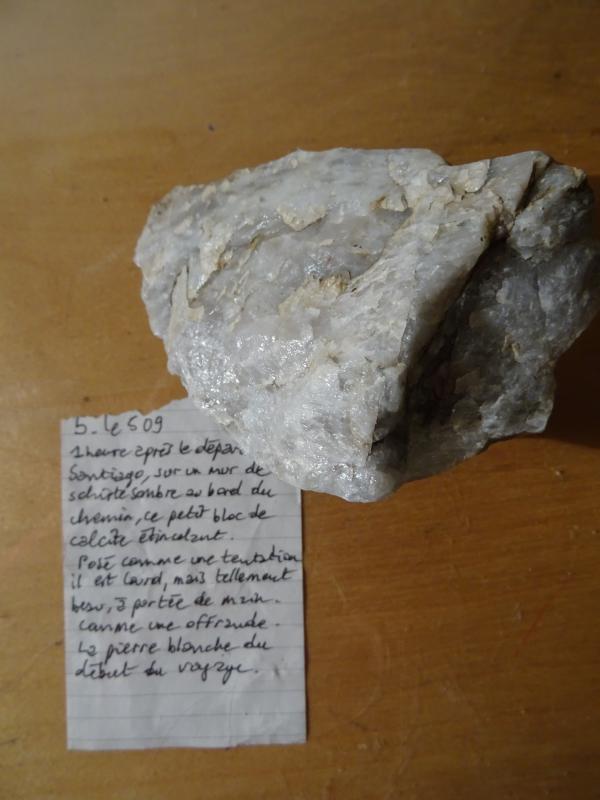 5. le 5 09
1 heure après le dépar
Santiago, sur un mur de
schiste sombre au bord du
chemin, ce petit bloc de
calcite étincelant.
Posé comme une tentation
il est lourd, mais tellement
beau, à portée de main.
comme une offrande.
La pierre blanche du
début du voyage.